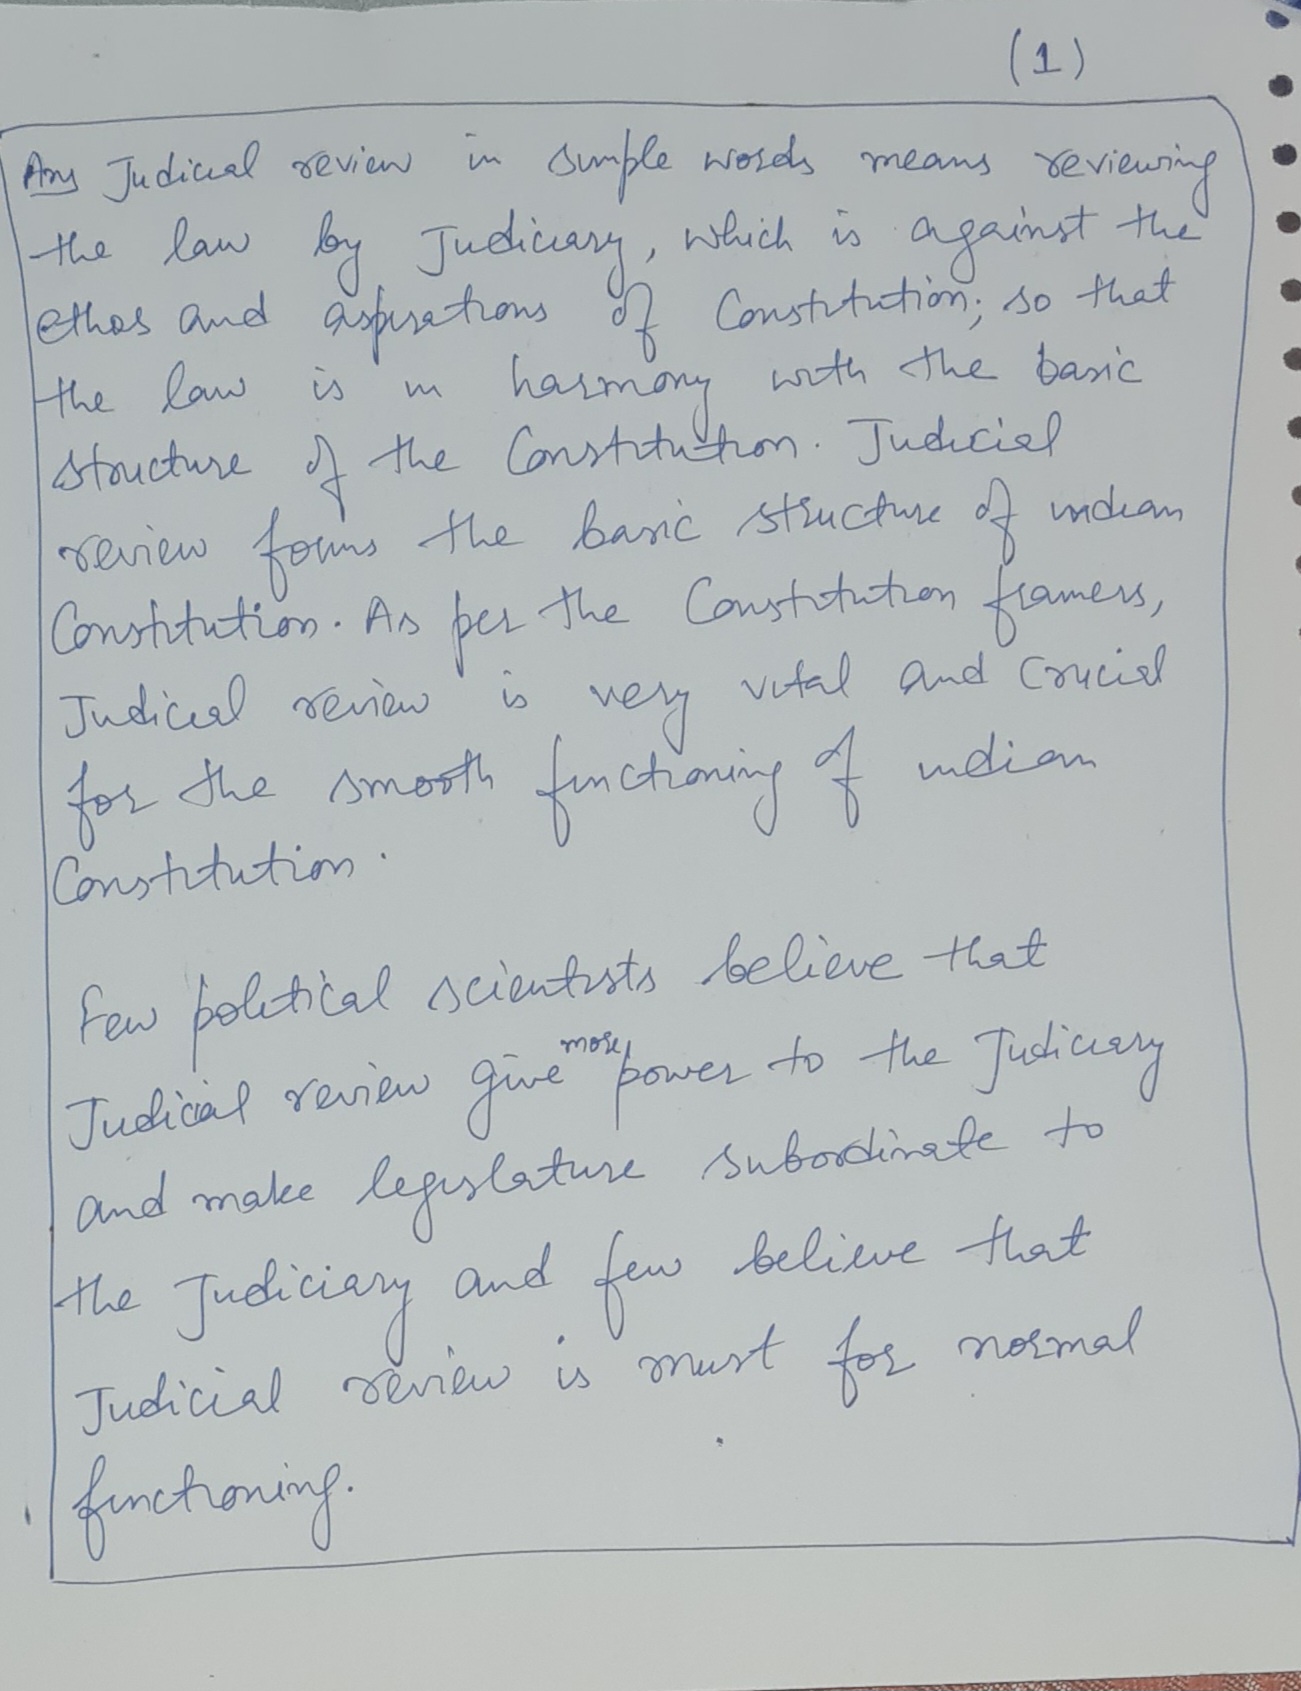 (1)
Ans Judicial review in simple words means reviewing
the law by Judiciary, which is against the
ethos and aspirations of Constitution; so that
the law is in harmony with the basic
structure of the Constitution. Judicial
review forms the basic structure of indian
Constitution. As per the Constitution framers,
Judicial review is very vital and crucial
for the smooth functioning of indian
Constitution.
Few political scientists believe that
Judicial review give more power to the Judiciary
and make legislature subordinate to
the Judiciary and few believe that
Judicial review is must for normal
functioning.